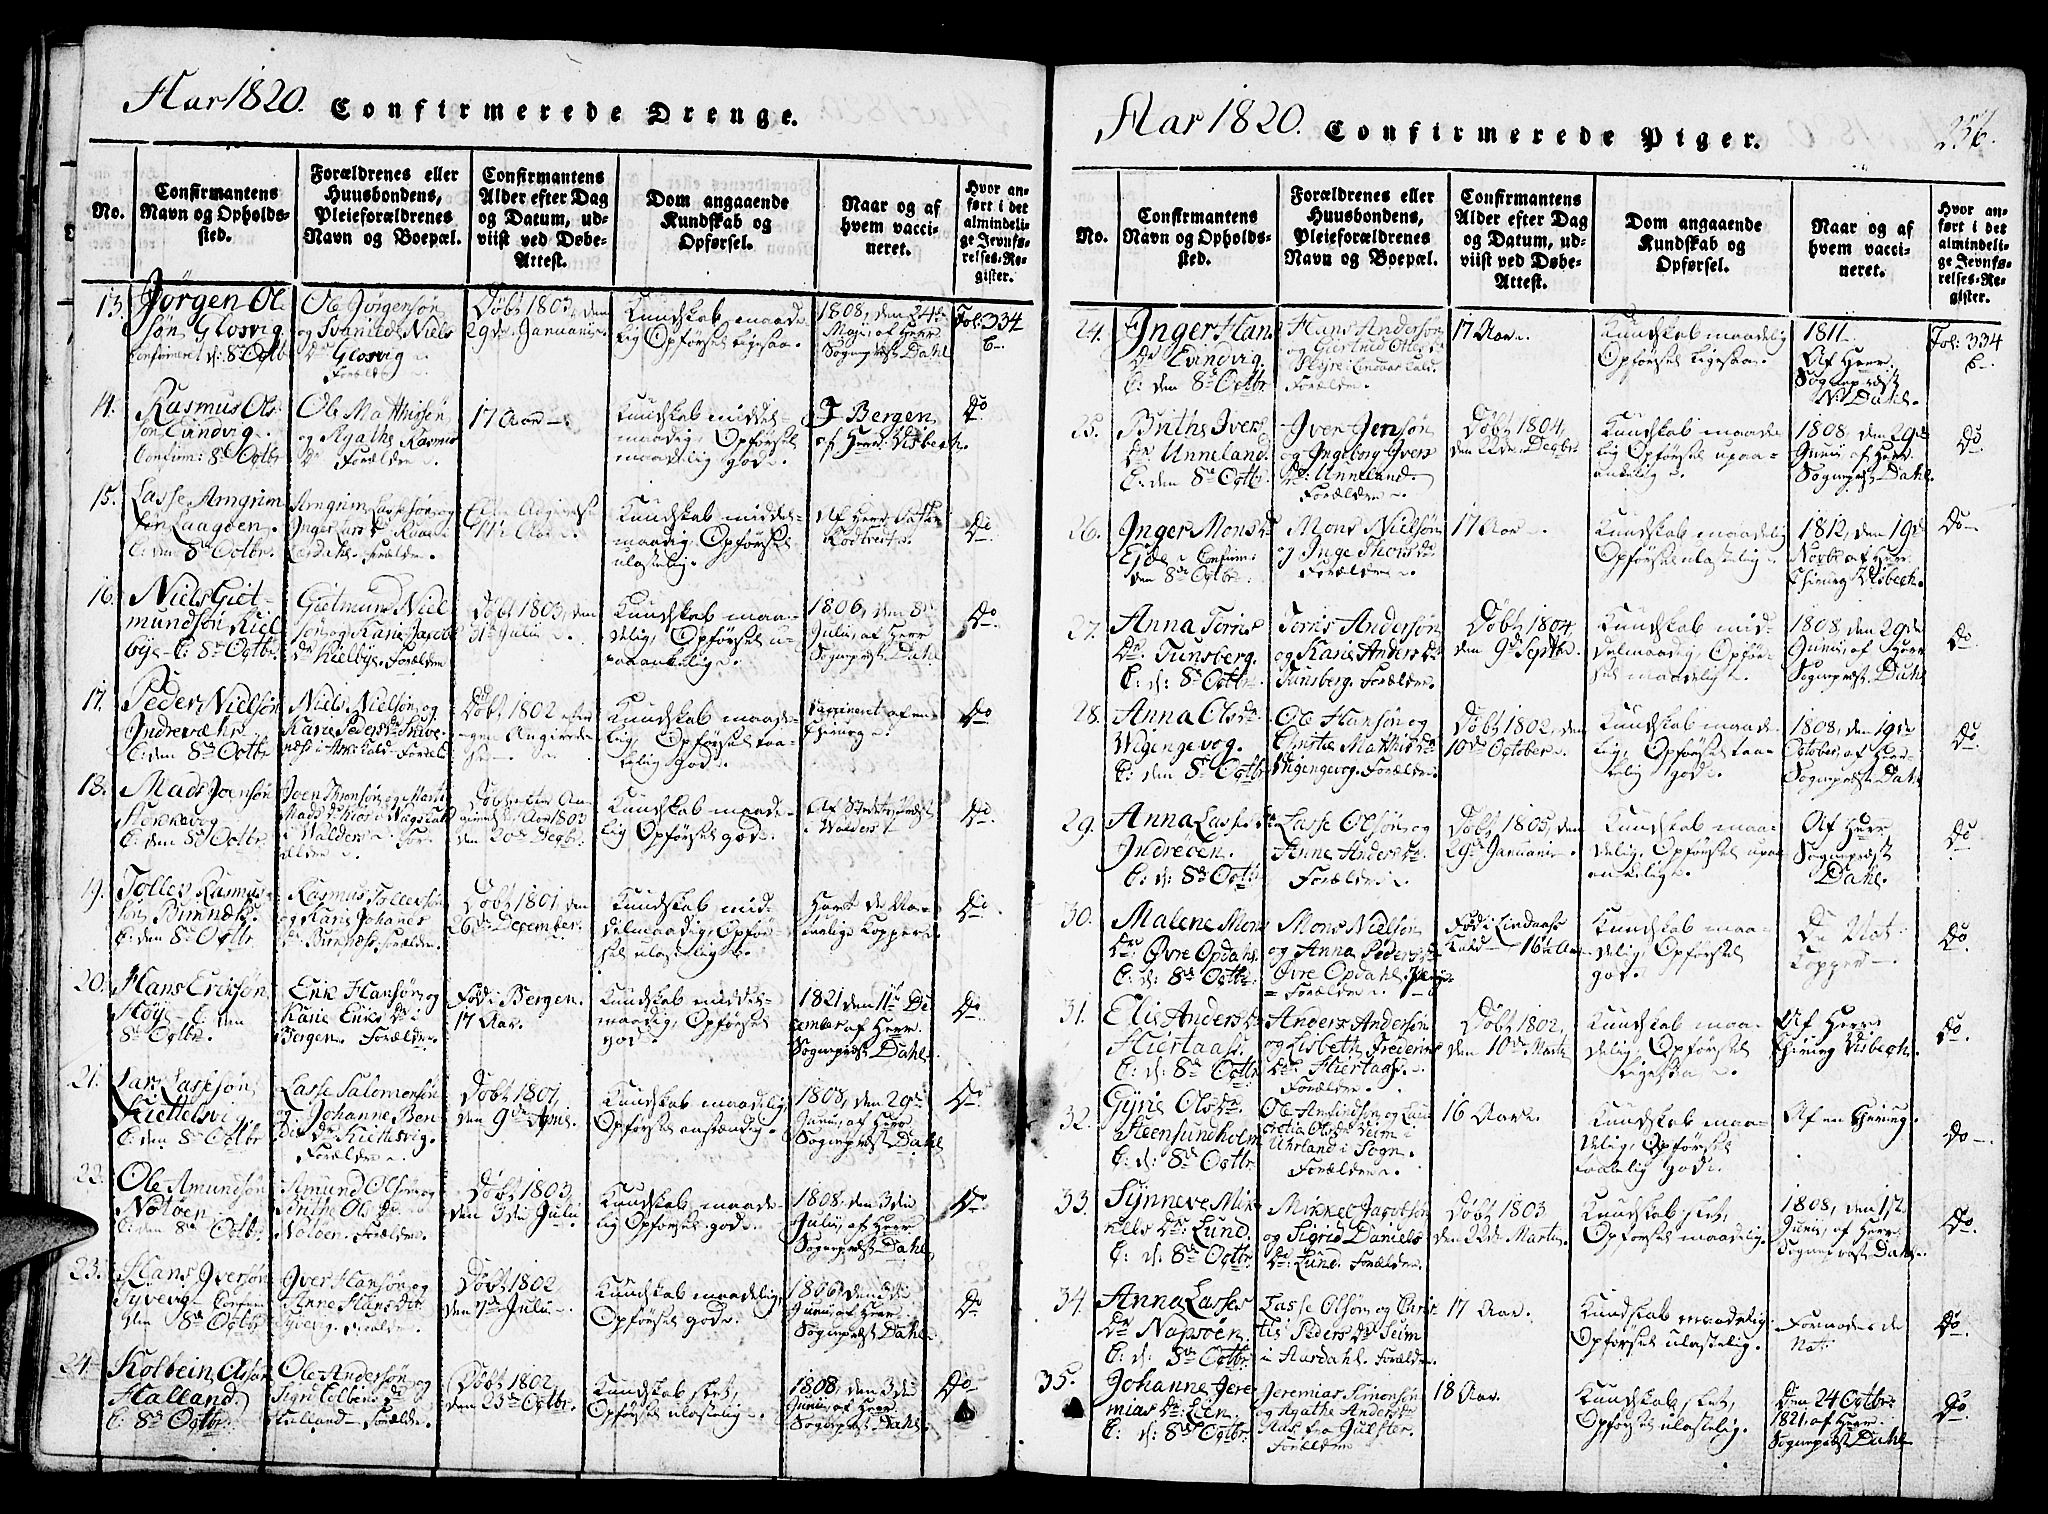 Aar 1820. Confirmerede Drenge.
No.
Confirmantens
Navn og Opholds-
sted.
Forældrenes eller
Huusbondens,
Pleieforældrenes
Navn og Boepæl.
Confirmantens
Alder efter Dag
og Datum, ud-
viist ved Døbe-
Attest.
Dom angaaende
Kundskab og
Opførsel.
Naar og af
hvem vacci-
neret.
Hvor an-
ført i det
almindeli-
ge Jevnfø-
relses-Re-
gister.
13.
Jørgen Ol
søn Glosvig
Confirmeret d: 8de Octb
Ole Jørgensøn
og Svanild Niels
dr Glosvig
Forældre
Døbt 1803, den
29de Januarie
Kundskab maade
lig Opførsel ligesaa
1808, den 24de
Maji, af Herr
Sognepræst Dahl
Fol: 334
b
14.
Rasmus Ols
søn Eivindvig
Confirm: 8de Octbr
Ole Matthisøn
og Agathe Rasmus
dr Forældre
17 Aar
Kundskab middel-
maadig, Opførsel
maadelig god
I Bergen
af Herr Visbech
Do
15.
Lasse Arngrim
søn Laagøen
C: den 8de Octbr
Arngrim Lassesøn og
Inger Lars dr
Lærdahl. Forældre
17½ Aar
Kundskab middel-
maadig, Opførsel
ulastelig.
Do
16.
Niels Giet-
mundsøn Kiel
bye C: 8de Octbr
Gietmund Niel
søn og Karie Jacobs
dr Kielbye. Forældre
Døbt 1803, den
31te Julii
Kundskab maa-
delig, Opførsel u-
paaankelig.
1806, den 8de
Julii, af Herr
Sognepræst Dahl
Do
17.
Peder Nielsøn
Indrevæhr
C: den 8de Octbr
Niels Nielsøn og
Karie Peders dr
Døbt 1802 efter
egen Angivelse
Kundskab maade-
lig, Opførsel taa-
lelig god.
Vaccineret af en
Chirurg
Do
18.
Mads Joensøn
C: den 8de Octbr
i Walders
Døbt efter An
givende Aar 1803
den 20de Decbr.
Kundskab maade-
lig Opførsel god.
i Walders
Do
19.
Tollev Rasmus-
søn Birknæs
C: den 8de Octbr.
Rasmus Tollevsøn
og Karie Johanes
dr Birknæs. Forældre.
Døbt 1801 den
26de December.
Kundskab mid-
delmaadig, Opfør
sel ulastelig.
Havt de Na-
turlige Kopper.
Do
20.
Hans Eriksøn
Høye C. den
8de Octbr.
Erik Hansøn og
Karie Eriks dr i
Bergen. Forældre.
Fød i Bergen.
17 Aar.
Kundskab middel-
maadig, Opførsel
god.
1821 den 11te De
cember af Herr
Sognepræst Dahl.
Do
21.
Lars Lassesøn
Kiettelsvig
C: den 8de Octbr
Lasse Salomonsøn
og Johanne Ben
dic dr Kiettelsvig.
Forældre.
Døbt 1801,
den 9de April.
Kundskab maadelig,
Opførsel anstændig.
1808, den 29de
Junii, af Herr
Sognepræst Dahl
Do
22.
Ole Amundsøn
Notøen
C: den 8de Octbr.
Amund Olsøn og
Brithe Ols dr
Notøen. Forældre.
Døbt 1803,
den 3die Julii
Kundskab maade
lig Opførsel god.
1808, den 3die
Julii, af Herr
Sognepræst Dahl
Do
23.
Hans Iversøn
Confirm
den 8de Octbr
Iver Hansøn og
Anne Hans dr
Forældre.
Døbt 1802
den 7de Julii
Kundskab maadelig,
Opførsel god.
1806, den 3die
Junii, af Herr
Sognepræst Dahl
Do
24.
Kolbein Olsøn
Halland
C: 8de Octbr
Ole Andersøn og
Halland Forældre.
Døbt 1802,
den 23de Octbr.
Kundskab slet,
Opførsel ulastelig
1808, den 3die
Junii, af Herr
Sognepræst Dahl
Do
Aar 1820. Confirmerede Piger. 256.
No.
Confirmantens
Navn og Opholds-
sted.
Forældrenes eller
Huusbondens,
Pleieforældrenes
Navn og Boepæl.
Confirmantens
Alder efter Dag
og Datum, ud-
viist ved Døbe-
Attest.
Dom angaaende
Kundskab og
Opførsel.
Naar og af
hvem vacci-
neret.
Hvor an-
ført i det
almindeli-
ge Jevnfø-
relses-Re-
gister.
24.
Inger Hans
dr Evindvig.
C: den 8de Octbr
Hans Andersøn
og Giertrud
Forældre.
17 Aar.
Kundskab maadelig
Opførsel ligesaa.
1811.
Af Herr
Sognepræst
N: Dahl.
Fol: 334
b
25.
Brithe Ivers
dr Unneland
C: den 8de Octbr
Iver Jensøn
og Ingeborg Ivers
dr: Unneland.
Forældre.
Døbt 1804,
den 22de Decbr.
Kundskab maade
lig Opførsel upaa-
ankelig.
1808, den 29de
Junii af Herr
Sognepræst Dahl.
Do
26.
Inger Mons dr
Eide Confirm:
den 8de Octbr.
Mons Nielsøn
og Inge Thors dr
Forældre
17 Aar
Kundskab maadelig
Opførsel ulastelig
1812, den 19de
Novbr af Herr
Chirurg Visbech
Do
27.
Anna Torris
dr Tunsberg.
C: d: 8de Octbr
Torris Andersøn
og Karie Anders dr
Tunsberg. Forældre.
Døbt 1804,
den 9de Septbr.
Kundskab mid-
delmaadig, Opfør-
sel maadelig.
1808, den 29de
Junii, af Herr
Sognepræst Dahl
Do
28.
Anna Ols dr
Wigingevog.
C: den 8de Octbr
Ole Hansøn og
Christie Matthis dr
Wigingevog. Forældre.
Døbt 1802, den
10de October
Kundskab maade
lig, Opførsel taa-
lelig god.
1808, den 19de
October, af Herr
Sognepræst Dahl
Do
29.
Anna Lasse dr
Indreeen.
C: d: 8de Octbr
Lasse Olsøn og
Anne Anders dr
Forældre.
Døbt 1805, den
29de Januarie
Kundskab maa-
delig. Opførsel upaa
ankelig.
Af Herr
Sognepræst
Dahl.
Do
30.
Malene Mons
dr: Øvre Opdahl
C: d: 8de Octbr.
Mons Nielsøn
og Anna Peders dr
Øvre Opdahl.
Forældre.
Fød i Lindaas
Kald 16½ Aar
Kundskab maa-
delig, Opførsel
god.
De Nat-
Kopper
Do
31.
Elie Anders dr
Hiertaas.
C: d: 8de Octbr
Anders Andersøn
og Lisbeth Frederics
dr Hiertaas
Forældre.
Døbt 1802,
den 10de Martz
Kundskab maa-
delig, Opførsel
ligesaa
Af Herr
Chirurg Visbech.
Do
32.
Gyrie Ols dr.
Steensundholm
C: d: 8de Octbr
Uhrland i Sogn.
Forældre.
16 Aar.
Kundskab maa-
delig, Opførsel
taalelig god.
Af en Chirurg.
do
33.
Synneve Mik
kels dr: Lund.
C: d: 8de Octbr.
Mikkel Jacobsøn
og Sigrid Daniels
dr: Lund. Forældre.
Døbt 1803
den 22de Martz
Kundskab slet,
Opførsel maadelig.
1808, den 1ste
Junii, af Herr
Sognepræst Dahl.
Do
34.
Anna Lasses
dr Napsøen.
C: d: 8de Octbr.
Lasse Olsøn og Chris
tie Peders dr Seim
i Aardahl. Forældre.
17 Aar.
Kundskab maadelig
Opførsel ulastelig.
Formodes de
Nat:
Do
35.
Johanne Jere
mias dr: Een.
C: d: 8de Octbr:
Jeremias Simonsøn
og Agathe Anders dr
Aas fra Gulster.
Forældre
18 Aar.
Kundskab slet,
Opførsel ulastelig.
Den 24 Octbr
1821, af Herr
Sognepræst Dahl
Do